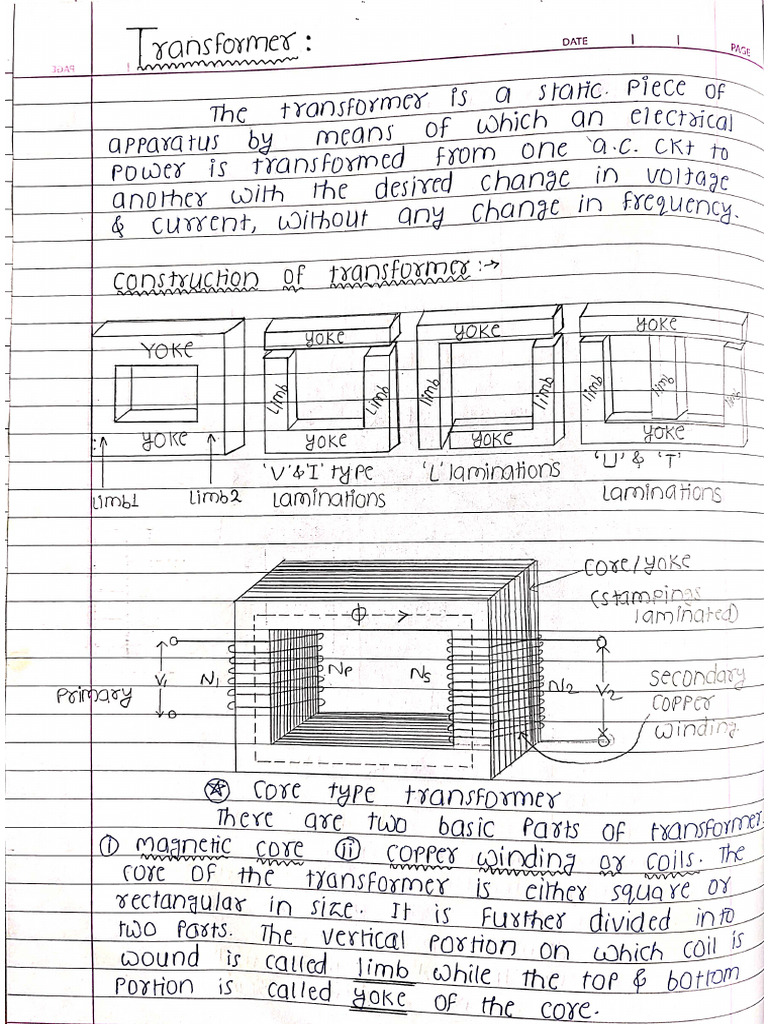 Transformer:
DATE
PAGE
PAGE
The transformer is a static. Piece of
apparatus by means of which an electrical
power is transformed from one a.c. ckt to
another with the desired change in voltage
& current, without any change in frequency.
construction of transformer:→
YOKE
YOKE
YOKE
YOKE
limb
limb
limb
limb
limb
limb
limb
YOKE
YOKE
YOKE
YOKE
limb1
limb2
'V'&'I' type
laminations
'L' laminations
'U' & 'T'
laminations
core/yoke
(stampings
laminated)
Φ
Primary
V1
N1
NP
NS
N2
V2
secondary
copper
winding.
core type transformer
There are two basic parts of transformer.
(i) magnetic core (ii) copper winding or coils. The
core of the transformer is either square or
rectangular in size. It is further divided into
two parts. The vertical portion on which coil is
wound is called limb while the top & bottom
portion is called yoke of the core.